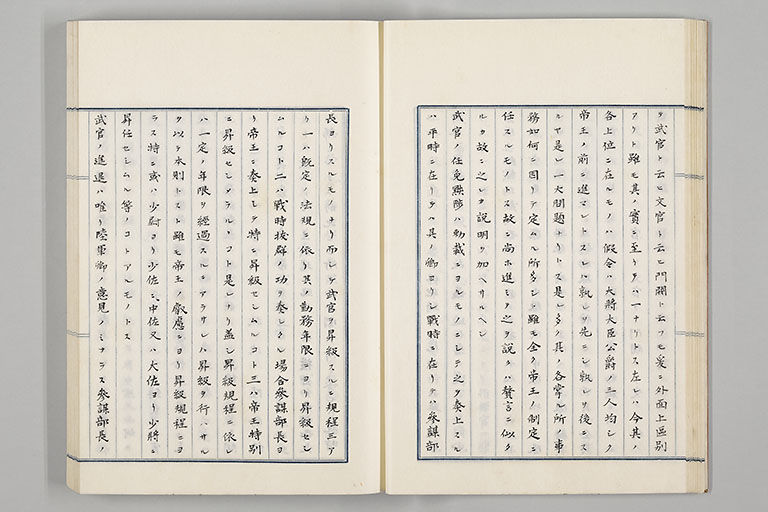 ヲ武官ト云ヒ文官ト云ヒ門閥ト云フモ爰ニ外面上區別
アリト雖モ其ノ實ニ至リテハ一ナリトス左レハ今其ノ
各上位ニ在ルモノハ假令ハ大將大臣公爵ノ三人均シク
帝王ノ前ニ進マントスレハ孰レヲ先ニシ孰レヲ後ニス
ルヤ是レ一大問題ナリトス是レ多ク其ノ各掌ル所ノ事
務如何ニ因リテ定ムル所多シト雖モ全ク帝王ノ制定ニ
任スルモノトス故ニ尚ホ進ミテ之ヲ説クハ贅言ニ似タ
ルカ故ニ之レカ説明ヲ加ヘサルヘシ
武官ノ任免黜陟ハ勅裁ニヨルモノニシテ之ヲ奏上スル
ハ平時ニ在リテハ其ノ卿ヨリシ戰時ニ在リテハ參謀部
長ヨリスルモノナリ而シテ武官ヲ昇級スルニ規程三ア
リ一ハ既定ノ法規ニ依リ其ノ勤務年限ニヨリ昇級セシ
ムルコト二ハ戰時拔群ノ功ヲ奏シタル場合參謀部長ヨ
リ帝王ニ奏上シテ特ニ昇級セシムルコト三ハ帝王特別
ニ昇級セシメラルヽコト是レナリ蓋シ昇級規程ニ依レ
ハ一定ノ年限ヲ經過スルニアラサレハ昇級ヲ行ハサル
ヲ以テ本則トスト雖モ帝王ノ叡慮ニヨリ昇級規程ニヨ
ラス特ニ或ハ少尉ヨリ少佐ニ中佐又ハ大佐ヨリ少將ニ
昇任セシムル等ノコトアルモノトス
武官ノ進退ハ唯リ陸軍卿ノ意見ノミナラス參謀部長ノ